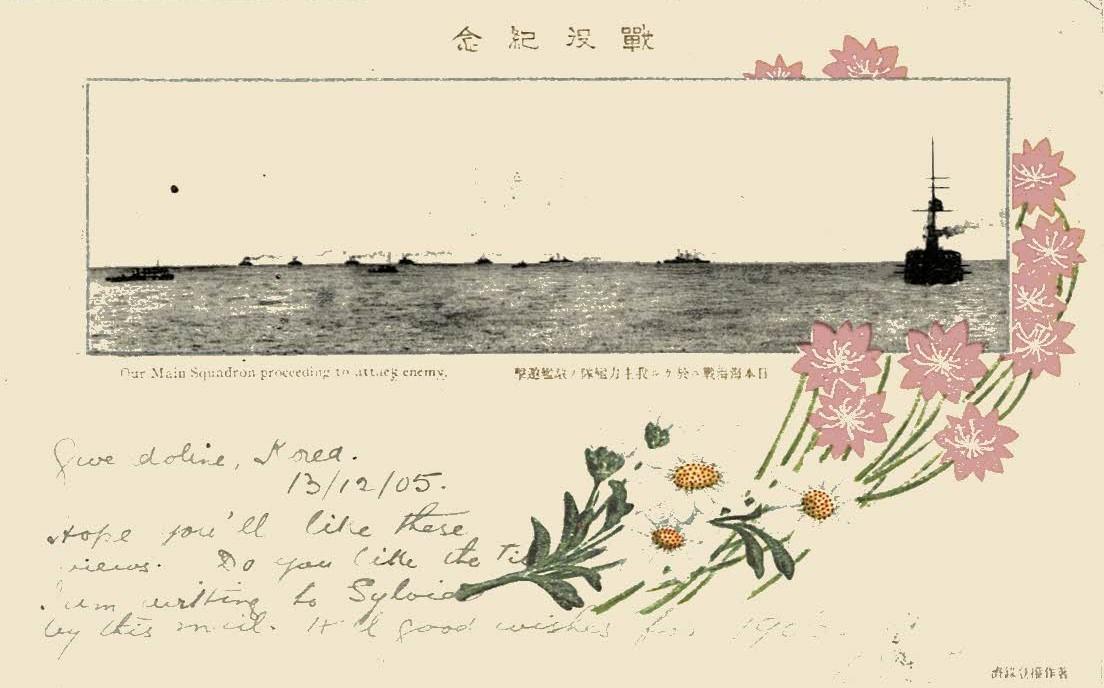 戰役紀念
Our Main Squadron proceeding to attack enemy.
日本海海戰ニ於ケル我主力艦隊ノ敵艦邀擊
Gwe doline, Korea.
13/12/05.
Hope you'll like these
views. Do you like the
I am writing to Sylvia
by this mail. good wishes for 1906.
著作權登錄濟